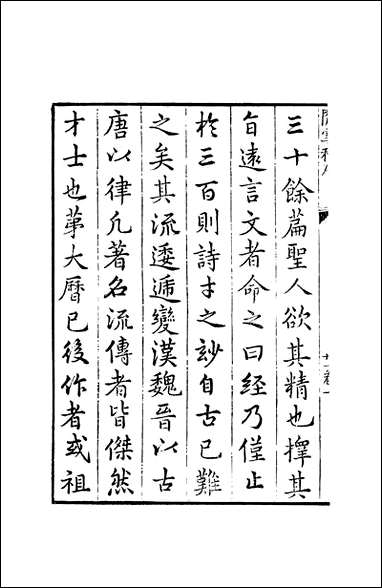 三十餘篇聖人欲其精也擇其
旨遠言文者命之曰經乃僅止
於三百則詩才之玅自古已難
之矣其流逶遞變漢魏晉以古
唐以律凡著名流傳者皆傑然
才士也苐大曆已後作者或祖